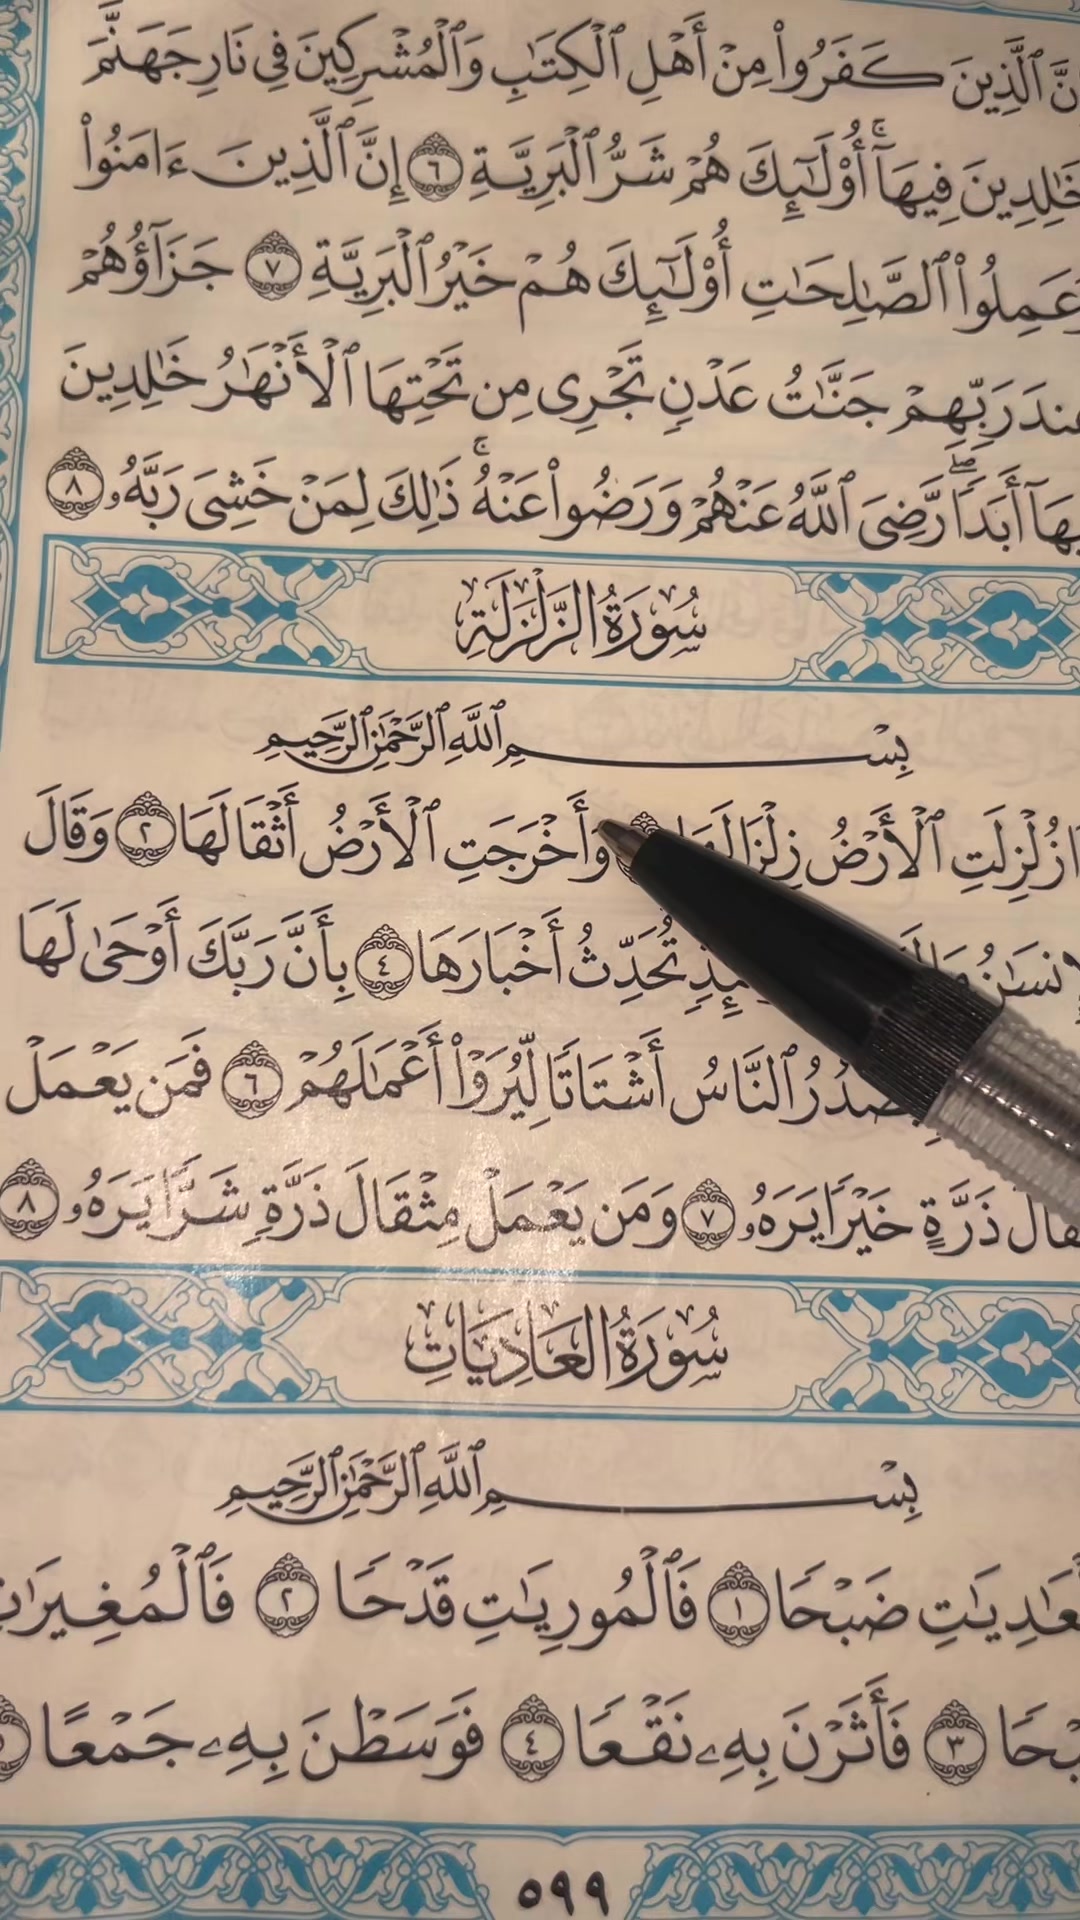 نَّ ٱلَّذِينَ كَفَرُوا۟ مِنْ أَهْلِ ٱلْكِتَٰبِ وَٱلْمُشْرِكِينَ فِى نَارِ جَهَنَّمَ
خَٰلِدِينَ فِيهَآ ۚ أُو۟لَٰٓئِكَ هُمْ شَرُّ ٱلْبَرِيَّةِ ٦ إِنَّ ٱلَّذِينَ ءَامَنُوا۟
وَعَمِلُوا۟ ٱلصَّٰلِحَٰتِ أُو۟لَٰٓئِكَ هُمْ خَيْرُ ٱلْبَرِيَّةِ ٧ جَزَآؤُهُمْ
عِندَ رَبِّهِمْ جَنَّٰتُ عَدْنٍ تَجْرِى مِن تَحْتِهَا ٱلْأَنْهَٰرُ خَٰلِدِينَ
فِيهَآ أَبَدًا ۖ رَّضِىَ ٱللَّهُ عَنْهُمْ وَرَضُوا۟ عَنْهُ ۚ ذَٰلِكَ لِمَنْ خَشِىَ رَبَّهُۥ ٨
سُورَةُ الزَّلْزَلَةِ
بِسْمِ ٱللَّهِ ٱلرَّحْمَٰنِ ٱلرَّحِيمِ
زُلْزِلَتِ ٱلْأَرْضُ زِلْزَالَهَا وَأَخْرَجَتِ ٱلْأَرْضُ أَثْقَالَهَا ٢ وَقَالَ
تُحَدِّثُ أَخْبَارَهَا ٤ بِأَنَّ رَبَّكَ أَوْحَىٰ لَهَا
ٱلنَّاسُ أَشْتَاتًا لِّيُرَوْا۟ أَعْمَٰلَهُمْ ٦ فَمَن يَعْمَلْ
قَالَ ذَرَّةٍ خَيْرًا يَرَهُۥ ٧ وَمَن يَعْمَلْ مِثْقَالَ ذَرَّةٍ شَرًّا يَرَهُۥ ٨
سُورَةُ العَادِيَاتِ
بِسْمِ ٱللَّهِ ٱلرَّحْمَٰنِ ٱلرَّحِيمِ
عَٰدِيَٰتِ ضَبْحًا ١ فَٱلْمُورِيَٰتِ قَدْحًا ٢ فَٱلْمُغِيرَٰتِ
بْحًا ٣ فَأَثَرْنَ بِهِۦ نَقْعًا ٤ فَوَسَطْنَ بِهِۦ جَمْعًا ٥
٥٩٩